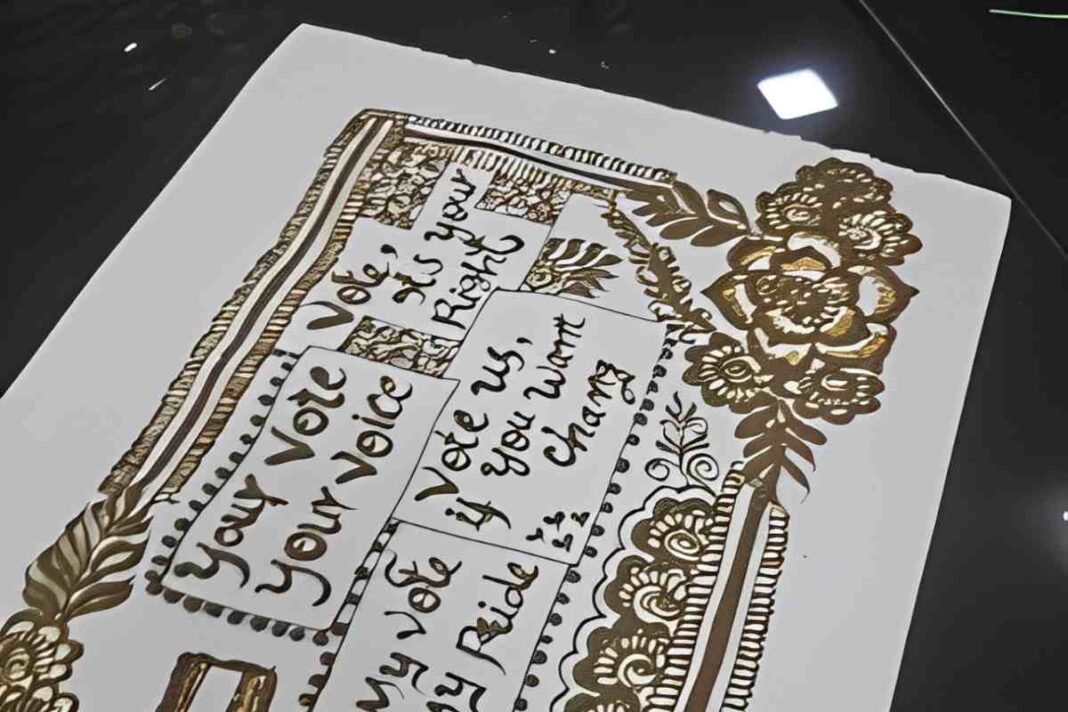 Vote,
it's your
Right
Your Vote
Your Voice
Vote us,
if you want
chang
My Vote
My Pride